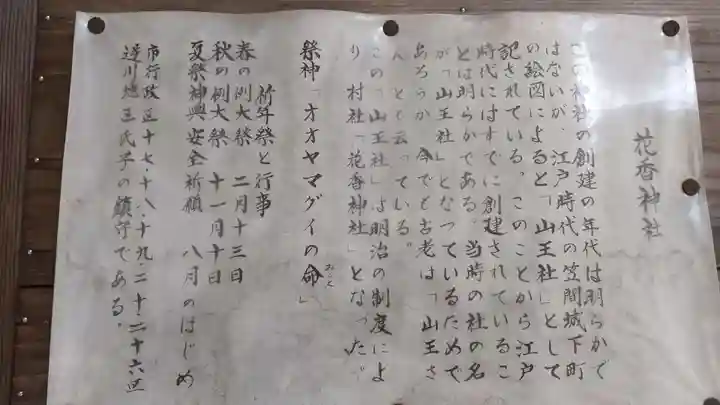 花香神社
この神社の創建の年代は明らかで
はないが、江戸時代の笠間城下町
の絵図によると「山王社」として
記されている。このことから江戸
時代にはすでに創建されているこ
とは明らかである。当時の社の名
が「山王社」となっているためで
あろうか今でも古老は「山王さ
ん」とも云っている。
この「山王社」は明治の制度によ
り村社「花香神社」となった。
祭神「オオヤマグイの命」
みこと
祈年祭と行事
春の例大祭 二月十三日
秋の例大祭 十一月十日
夏祭神輿安全祈願 八月のはじめ
市行政区十七・十八・十九二十・二十六区
逆川地区氏子の鎮守である。